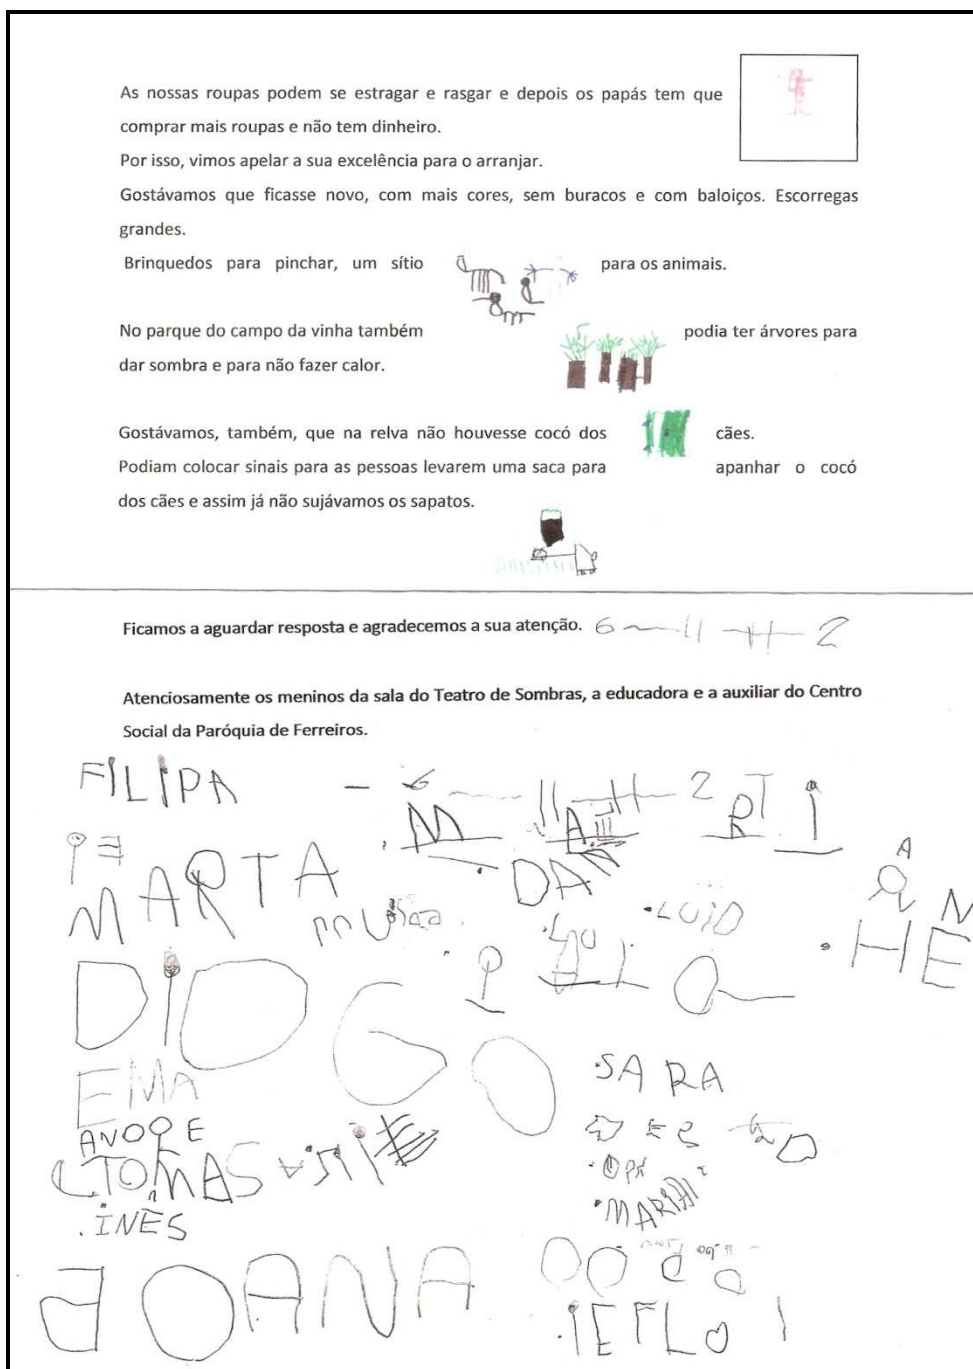 As nossas roupas podem se estragar e rasgar e depois os papás tem que
comprar mais roupas e não tem dinheiro.
Por isso, vimos apelar a sua excelência para o arranjar.
Gostávamos que ficasse novo, com mais cores, sem buracos e com baloiços. Escorregas
grandes.
Brinquedos para pinchar, um sítio para os animais.
No parque do campo da vinha também podia ter árvores para
dar sombra e para não fazer calor.
Gostávamos, também, que na relva não houvesse cocó dos cães.
Podiam colocar sinais para as pessoas levarem uma saca para apanhar o cocó
dos cães e assim já não sujávamos os sapatos.
Ficamos a aguardar resposta e agradecemos a sua atenção. 6 11 2
Atenciosamente os meninos da sala do Teatro de Sombras, a educadora e a auxiliar do Centro
Social da Paróquia de Ferreiros.
FILIPA
MARTA
DAN
DIOGO
HE
EMA
SARA
TOMAS
INÊS
JOANA